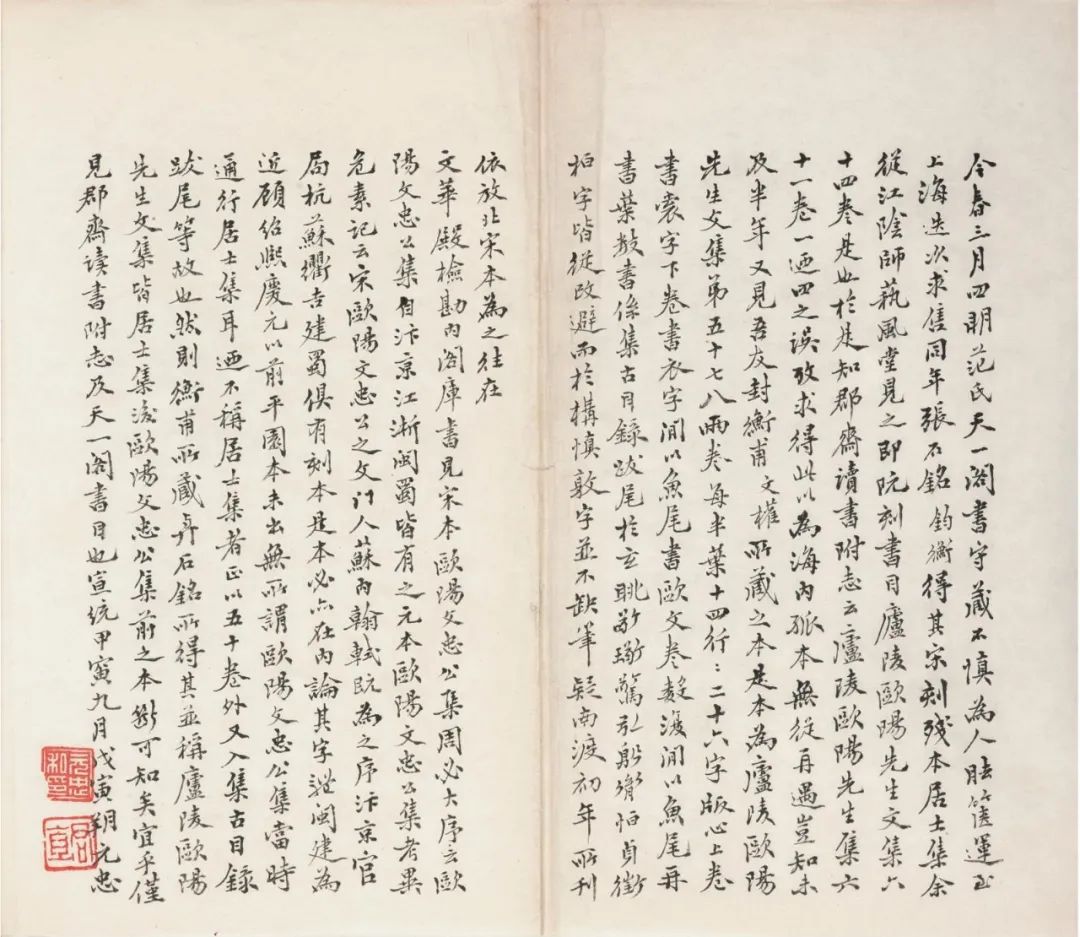 今春三月四明范氏天一閣書守藏不慎為人胠篋運至
上海迭次求售同年張石銘鈞衡得其宋刻殘本居士集余
從江陰師藝風堂見之即阮刻書目廬陵歐陽先生文集六
十四卷是也於是知郡齋讀書附志云廬陵歐陽先生集六
十一卷一迺四之誤攷求得此以為海內孤本無從再遇豈知未
及半年又見吾友封衡甫文權所藏之本是本為廬陵歐陽
先生文集第五十七八兩卷每半葉十四行行二十六字版心上卷
書裳字下卷書衣字間以魚尾書歐文卷數復間以魚尾再
書葉數書係集古目錄跋尾於玄眺敬璥驚弘殷讓恒貞徵
桓字皆從改避而於構慎敦字並不缺筆疑南渡初年所刊
依放北宋本為之往在
文華殿檢勘內閣庫書見宋本歐陽文忠公集周必大序云歐
陽文忠公集自汴京江浙閩蜀皆有之元本歐陽文忠公集考異
危素記云宋歐陽文忠公之文門人蘇內翰軾既為之序汴京官
局杭蘇衢吉建蜀俱有刻本是本必亦在內論其字迹閩建為
近顧紹熙慶元以前平園本未出無所謂歐陽文忠公集當時
通行居士集耳迺不稱居士集者正以五十卷外又入集古目錄
跋尾等故也然則衡甫所藏與石銘所得其並稱廬陵歐陽
先生文集皆居士集後歐陽文忠公集前之本斷可知矣宜乎僅
見郡齋讀書附志及天一閣書目也宣統甲寅九月戊寅朔元忠